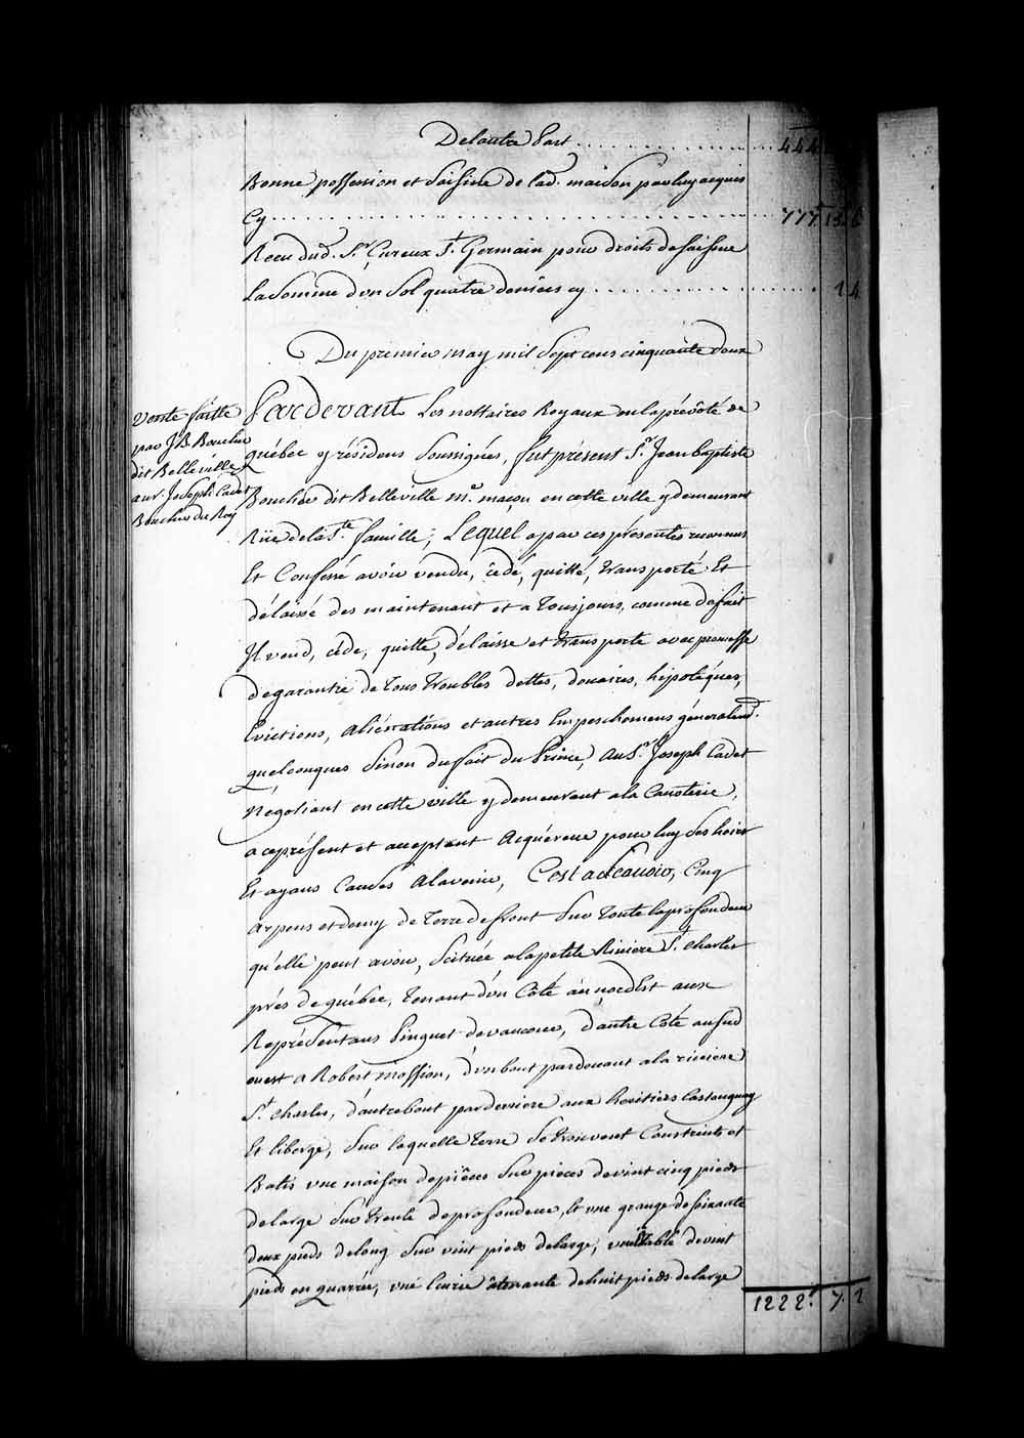 Delautre Part . . . . . . . . . . . . . . 444
Bonne possession et saisine de lad. maison par luy acquis
Cy . . . . . . . . . . . . . . . . . . . . 777.t 13. 6
Recu dud. Sr. Cureux St. Germain pour droits de saisine
La somme d'un sol quatre deniers cy . . . . . . . . . . . . 1 4
Du premier may mil sept cens cinquante deux
Vente faitte
par J. B. Boucher
dit Belleville
au sr. Joseph Cadet
Boucher du Roy
Pardevant Les nottaires Royaux en la prévôté de
québec y résidens soussignés, fut présent Sr. Jean baptiste
Boucher dit Belleville me. maçon en cette ville y demeurant
Rüe de la Ste. famille; Lequel a par ces présentes reconnu
Et Confessé avoir vendu, cédé, quitté, transporté Et
délaissé des maintenant et a Tousjours, comme de fait
Il vend, cède, quitte, délaisse et transporte avec promesse
de garantie de Tous Troubles dettes, douaires, hipotéques,
Evictions, aliénations et autres Empeschemens généralemt.
quelconques sinon du fait du Prince, au Sr. Joseph Cadet
Negotiant en cette ville y demeurant a la Canoterie,
a ce présent et acceptant acquéreur pour luy ses hoirs
Et ayans Causes alavenir, Cest ascavoir, Cinq
arpens et demy de Terre de front sur Toute la profondeur
qu'elle peut avoir, scituée a la petite Riviere St. Charles
près de québec, Tenant d'un Côté au nordEst aux
Représentans Pinguet de vaucour, d'autre Côté au sud
ouest a Robert mossion, d'un bout pardevant a la riviere
St. Charles, d'autre bout par derriere aux heritiers Castonguay
Et liberge, sur laquelle Terre se trouvent Construits et
Batis une maison de pièces sur pieces de vint cinq pieds
de large sur trente de profondeur, Et une grange de soixante
deux pieds de long sur vint pieds de large, une Etable de vint
pieds en quarrée, une Ecurie attenante de huit pieds de large
1222.t 7. 2